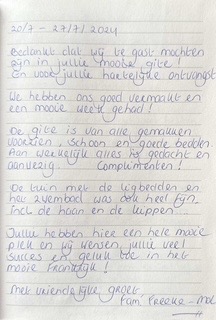 20/7 - 27/7/2024
Bedankt dat wij te gast mochten
zijn in jullie mooie gite!
En voor jullie hartelijke ontvangst
We hebben ons goed vermaakt en
een mooie week gehad!
De gite is van alle gemakken
voorzien, schoon en goede bedden.
Aan werkelijk alles is gedacht en
aanwezig. Complimenten!
De tuin met de ligbedden en
het zwembad was ook heel fijn.
Incl. de haan en de kippen.
Jullie hebben hier een hele mooie
plek en wij wensen jullie veel
succes en geluk toe in het
mooie Frankrijk!
Met vriendelijke groet,
Fam.